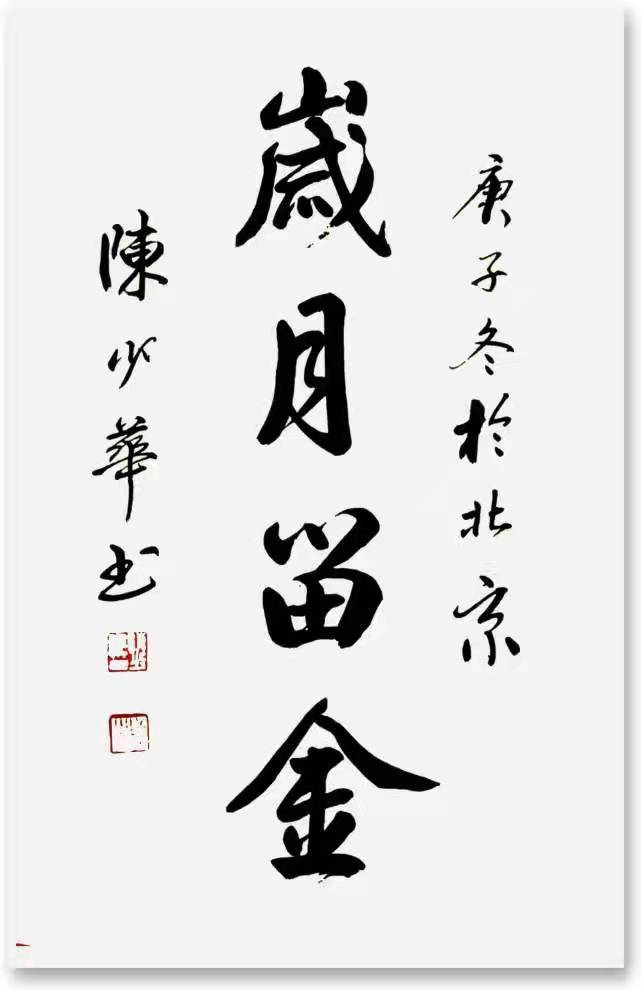 庚子冬於北京
嵗月留金
陳少華书